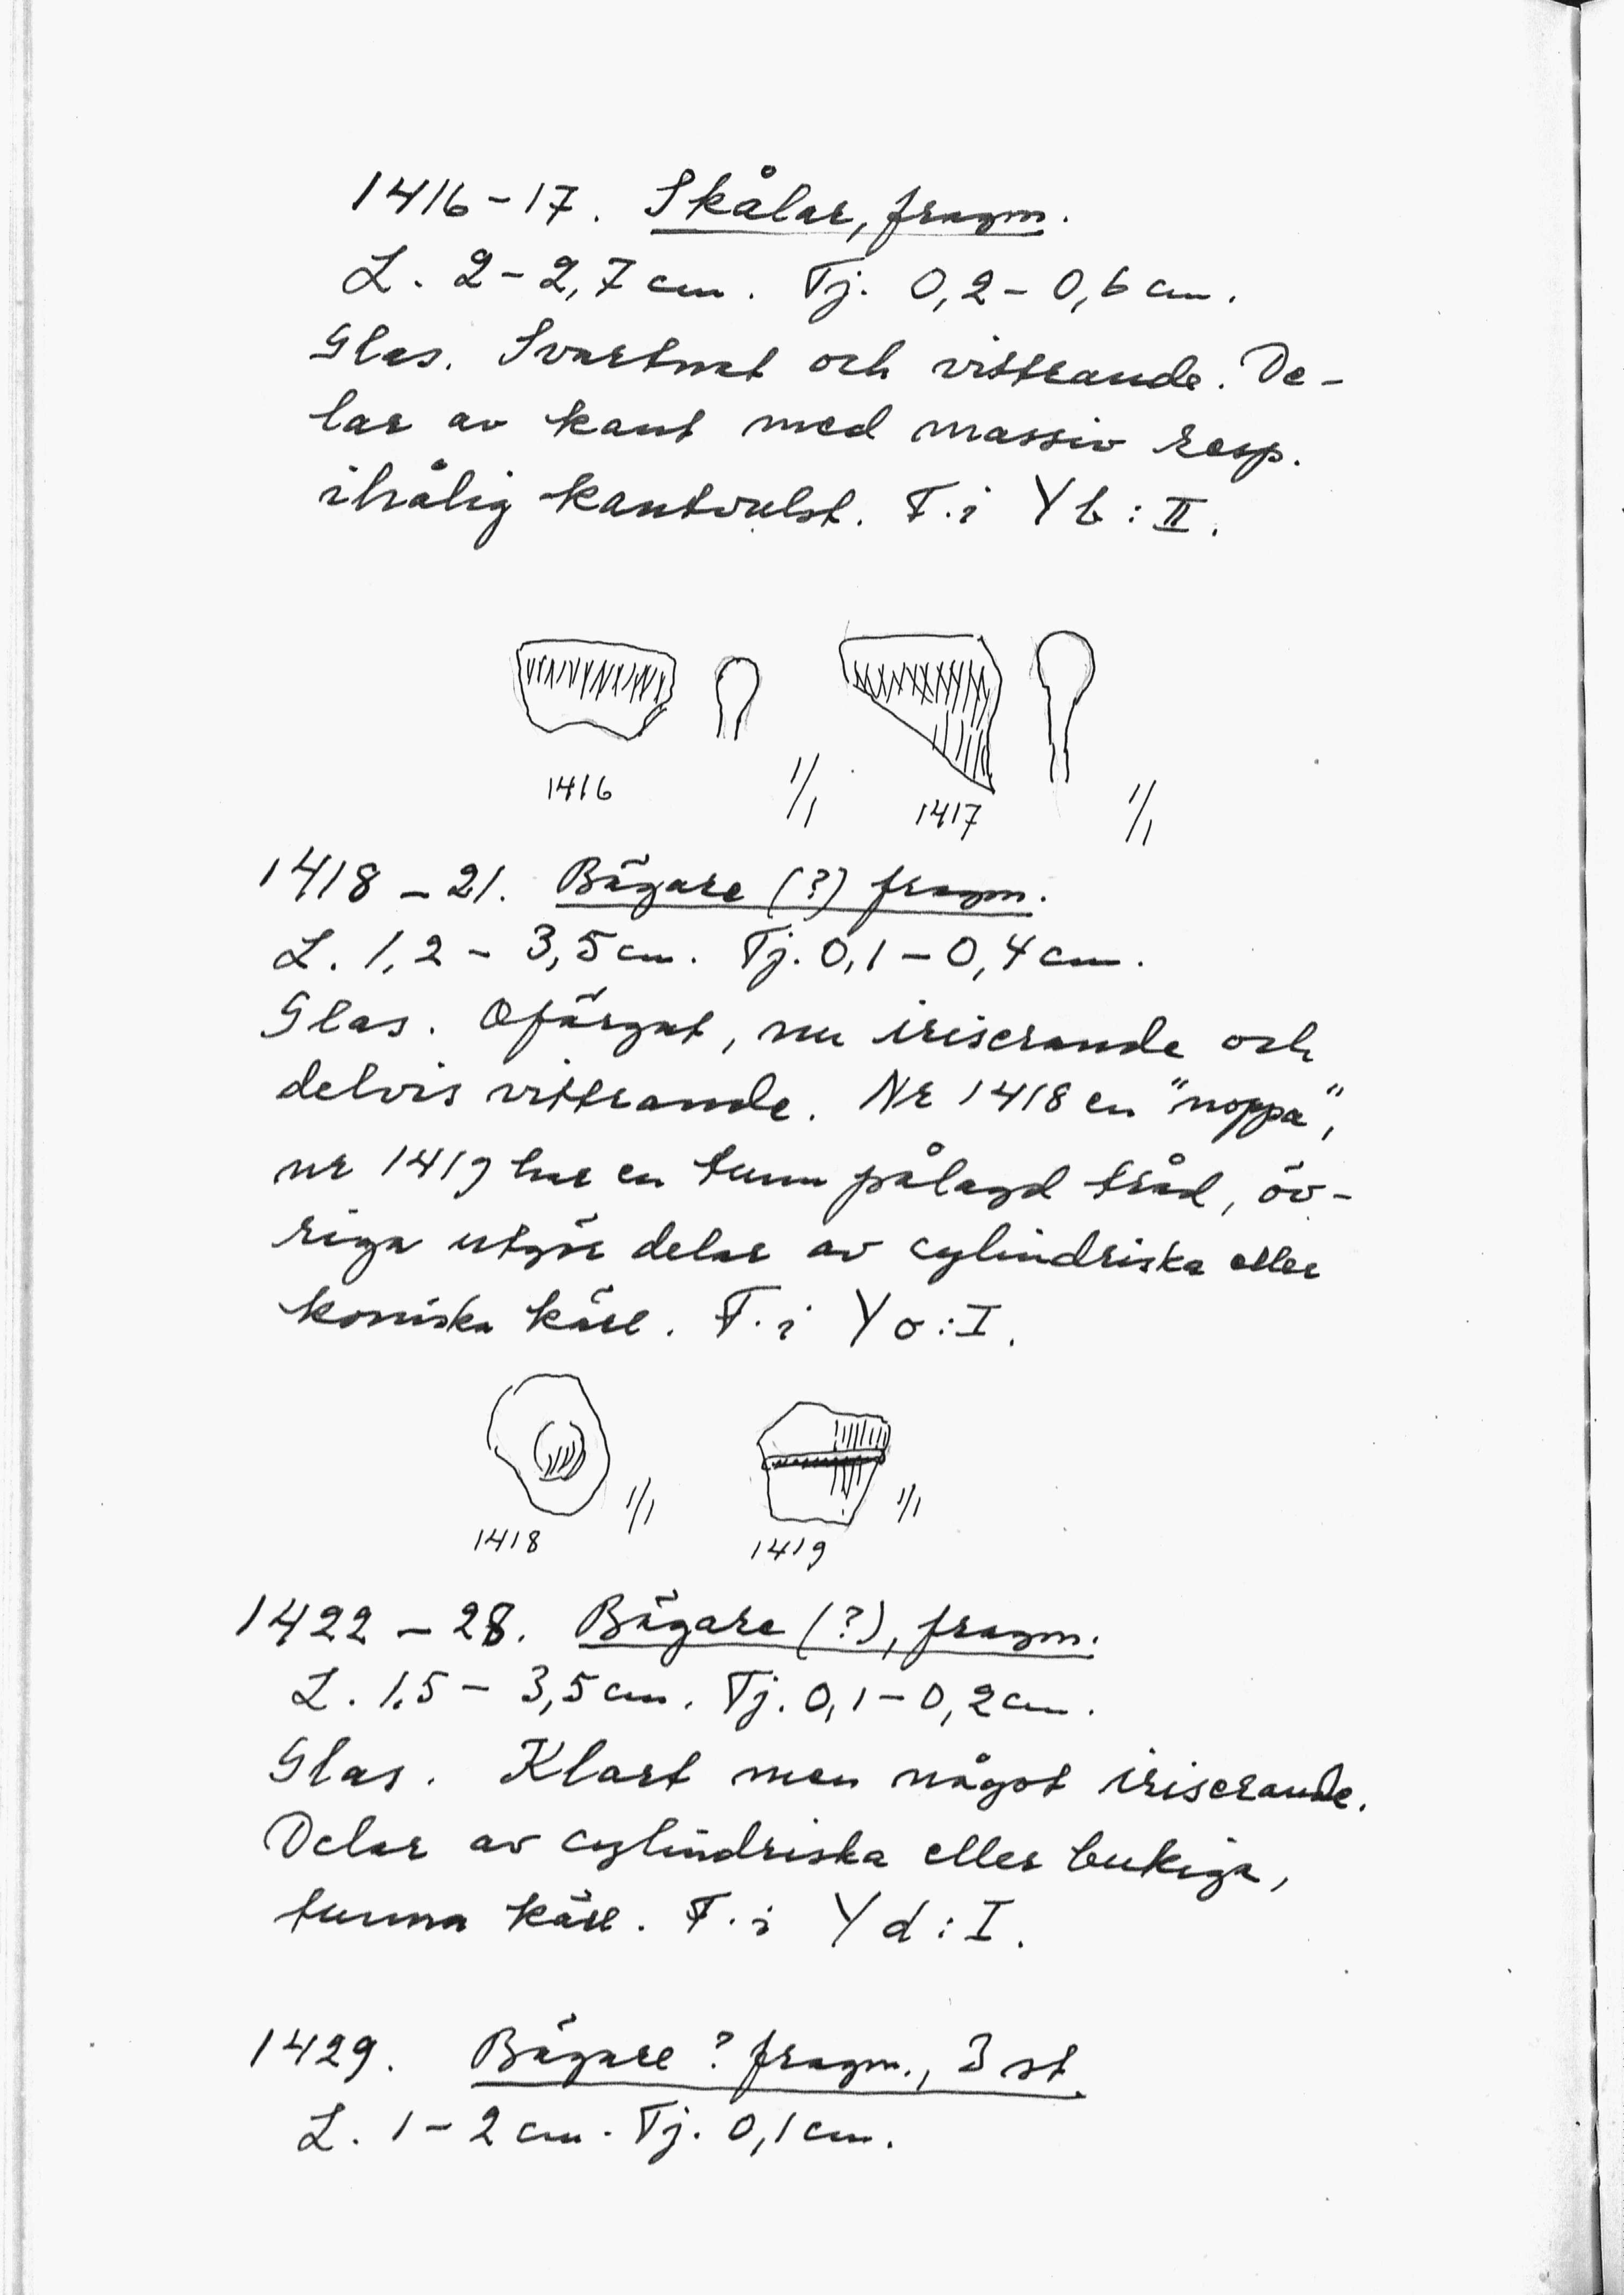 1416-17. Skålar, fragm.
L. 2-2,7 cm. Tj. 0,2-0,6 cm.
Glas. Svartnat och vittrande. De-
lar av kant med massiv resp.
ihålig kantvulst. F. i Y b : II.
1416 1/1 1417 1/1
1418-21. Bägare (?) fragm.
L. 1,2-3,5 cm. Tj. 0,1-0,4 cm.
Glas. Ofärgat, nu iriserande och
delvis vittrande. Nr 1418 en "noppa",
nr 1419 har en tunn pålagd tråd, öv-
riga utgör delar av cylindriska eller
koniska kärl. F. i Y o : I.
1418 1/1 1419 1/1
1422-28. Bägare (?), fragm.
L. 1,5-3,5 cm. Tj. 0,1-0,2 cm.
Glas. Klart men något iriserande.
Delar av cylindriska eller bukiga,
tunna kärl. F. i Y d : I.
1429. Bägare ? fragm., 3 st.
L. 1-2 cm. Tj. 0,1 cm.